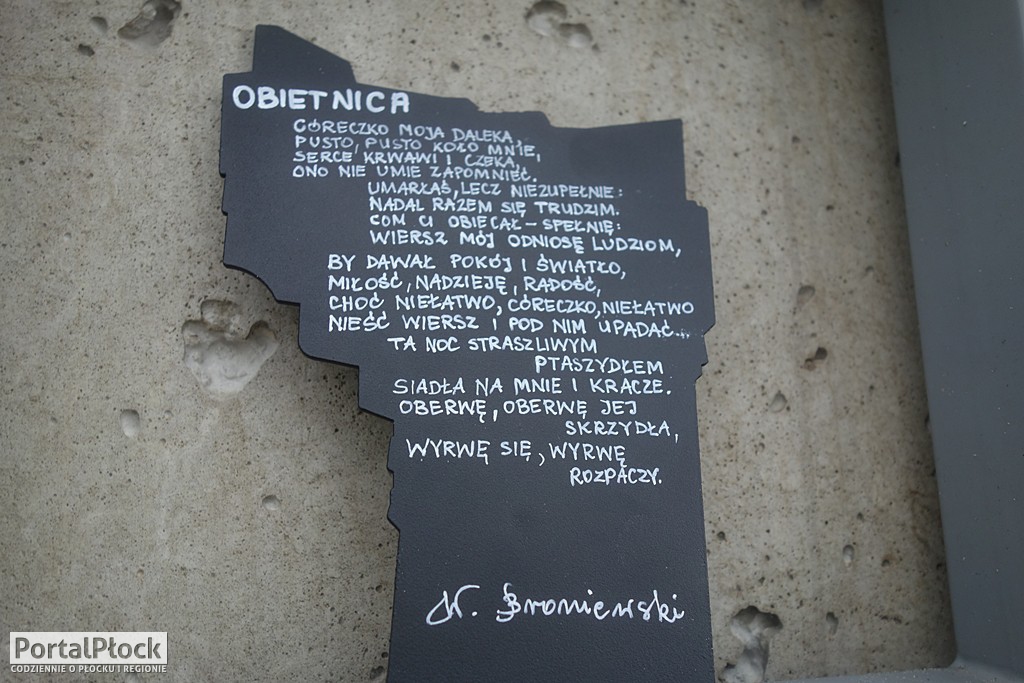 OBIETNICA
CÓRECZKO MOJA DALEKA,
PUSTO, PUSTO KOŁO MNIE,
SERCE KRWAWI I CZEKA,
ONO NIE UMIE ZAPOMNIEĆ.
UMARŁAŚ, LECZ NIEZUPEŁNIE:
NADAL RAZEM SIĘ TRUDZIM.
COM CI OBIECAŁ – SPEŁNIĘ:
WIERSZ MÓJ ODNIOSĘ LUDZIOM,
BY DAWAŁ POKÓJ I ŚWIATŁO,
MIŁOŚĆ, NADZIEJĘ, RADOŚĆ,
CHOĆ NIEŁATWO, CÓRECZKO, NIEŁATWO
NIEŚĆ WIERSZ I POD NIM UPADAĆ...
TA NOC STRASZLIWYM
PTASZYDŁEM
SIADŁA NA MNIE I KRACZE.
OBERWĘ, OBERWĘ JEJ
SKRZYDŁA,
WYRWĘ SIĘ, WYRWĘ
ROZPACZY.
W. Broniewski
PortalPłock
CODZIENNIE O PŁOCKU I REGIONIE